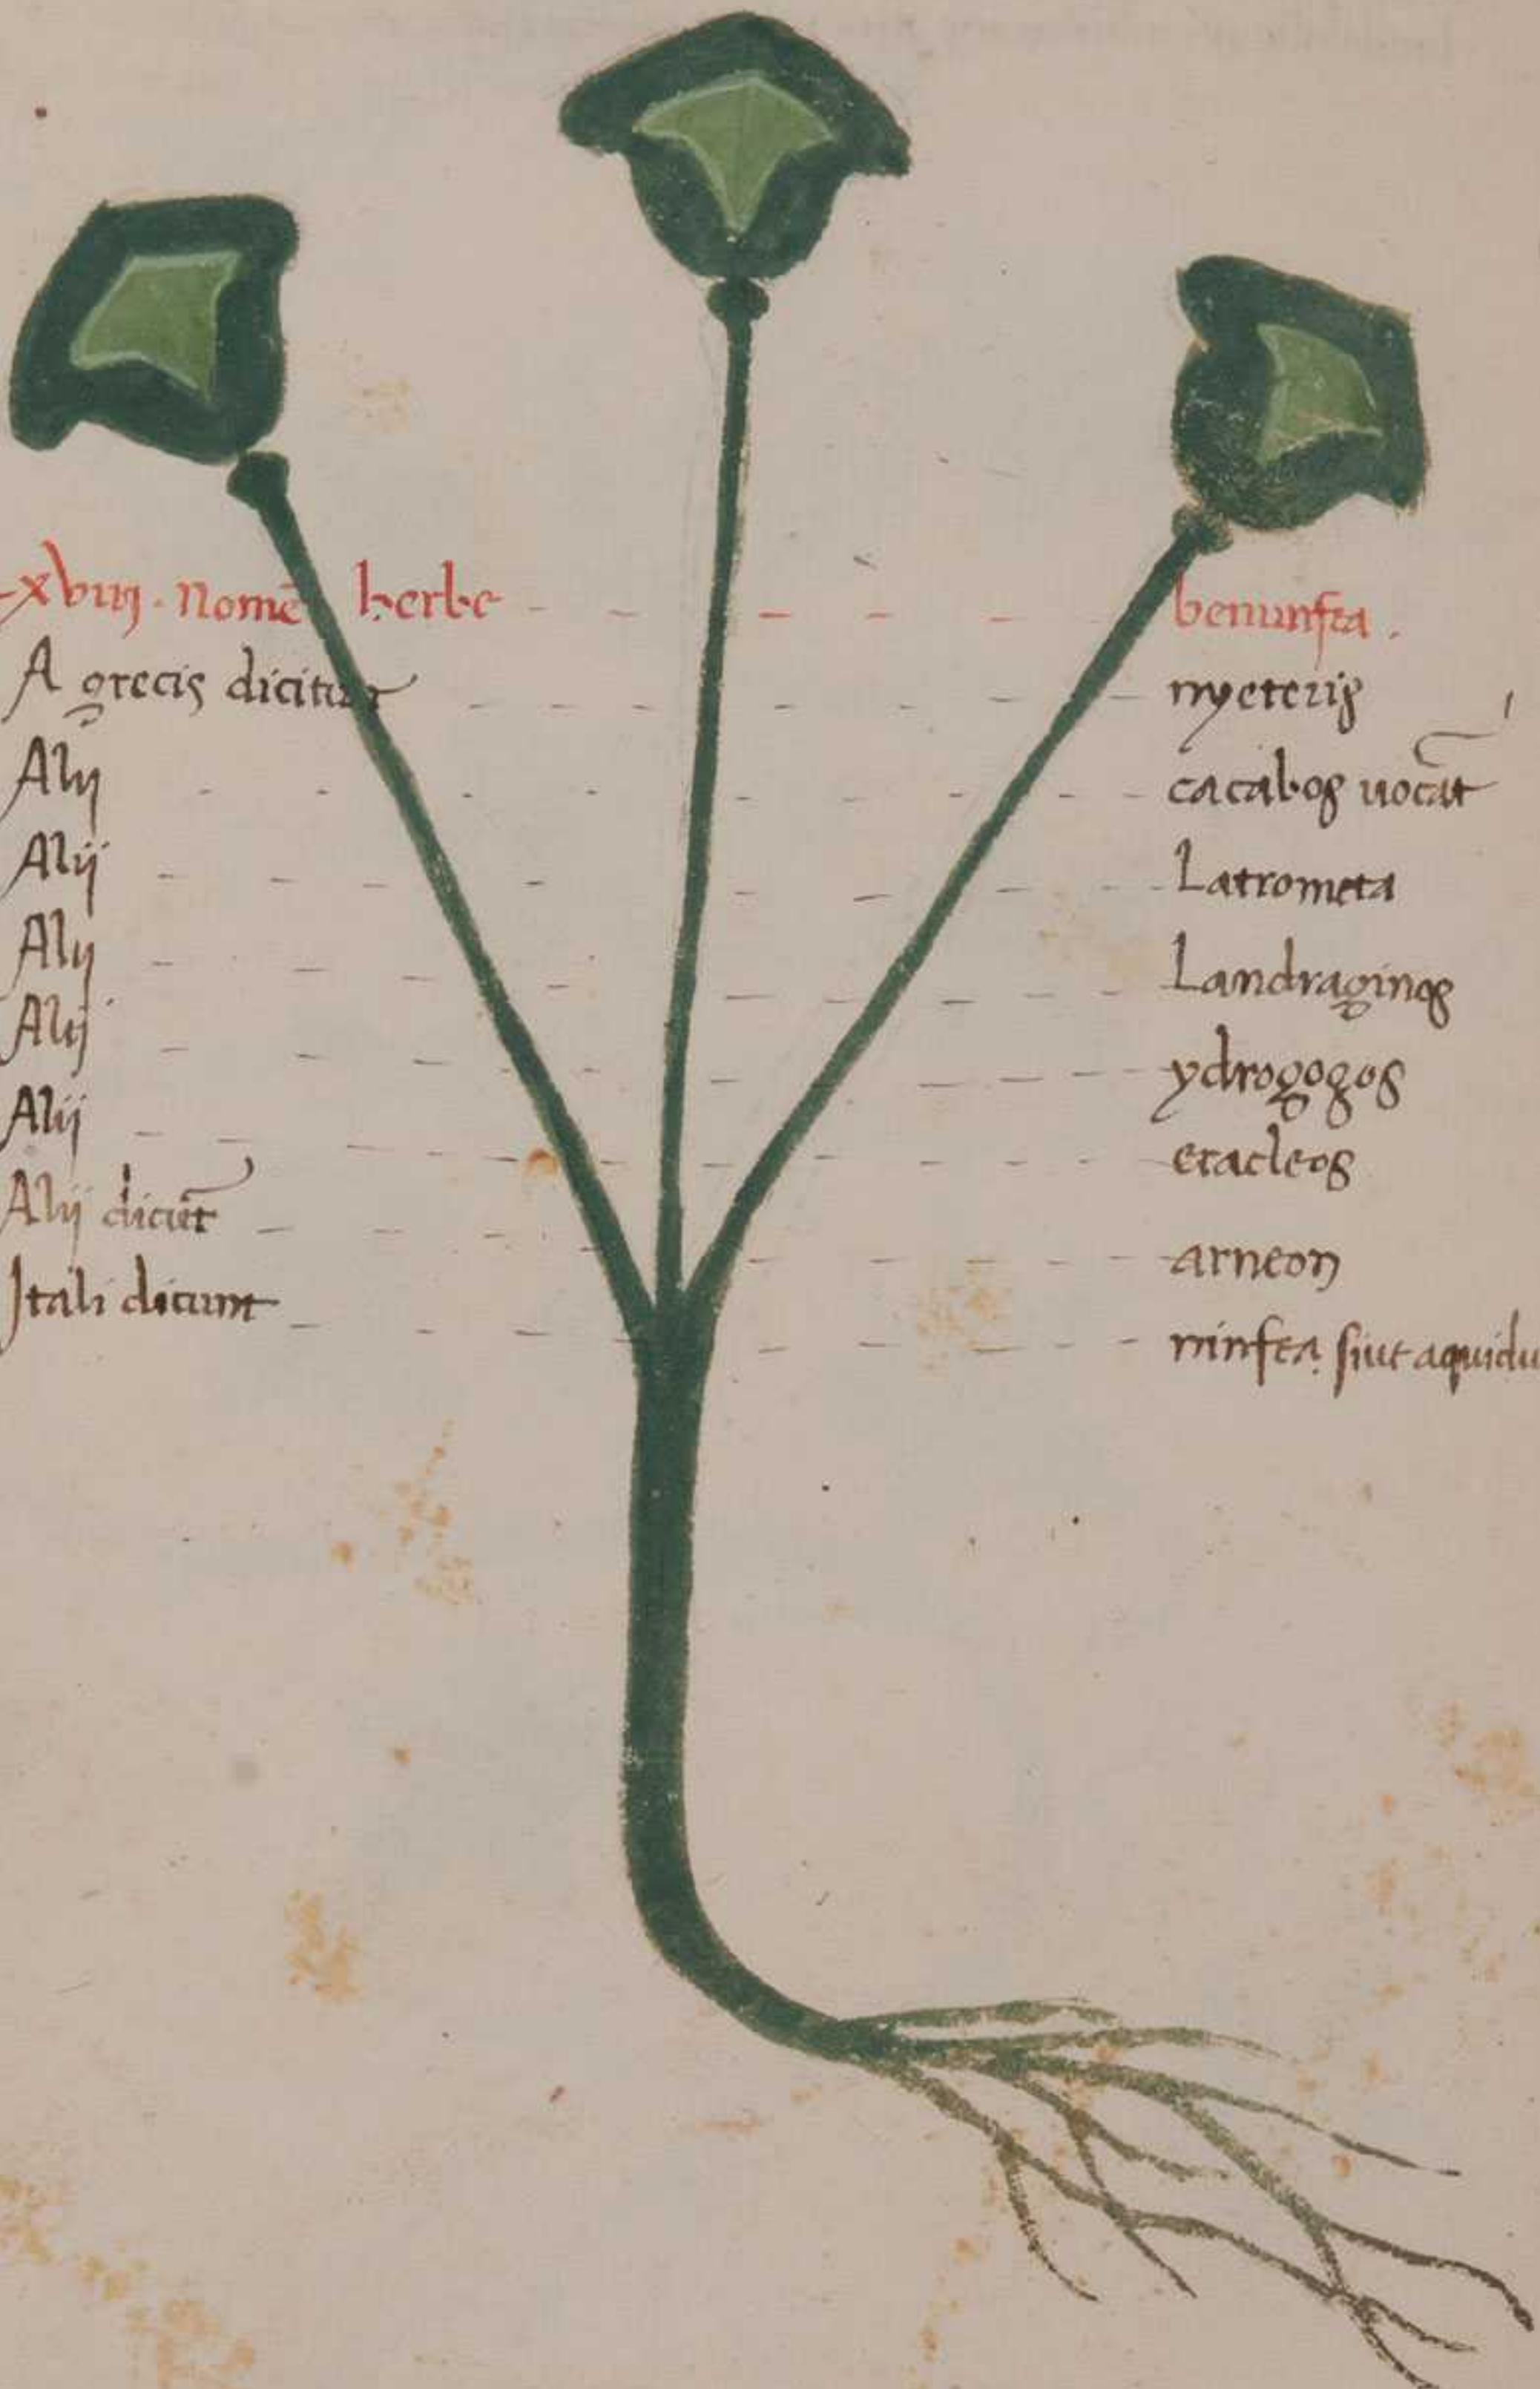 xviiij. nomē herbe - - - - beninfea.
A grecis dicitur - - - - nycteris
Alij - - - - cacabos uocāt
Alij - - - - Latrometa
Alij - - - - Landraginos
Alij - - - - ydrogogos
Alij - - - - eracleos
Alij dicūt - - - - arneon
Itali dicunt - - - - ninfea siue aquidu